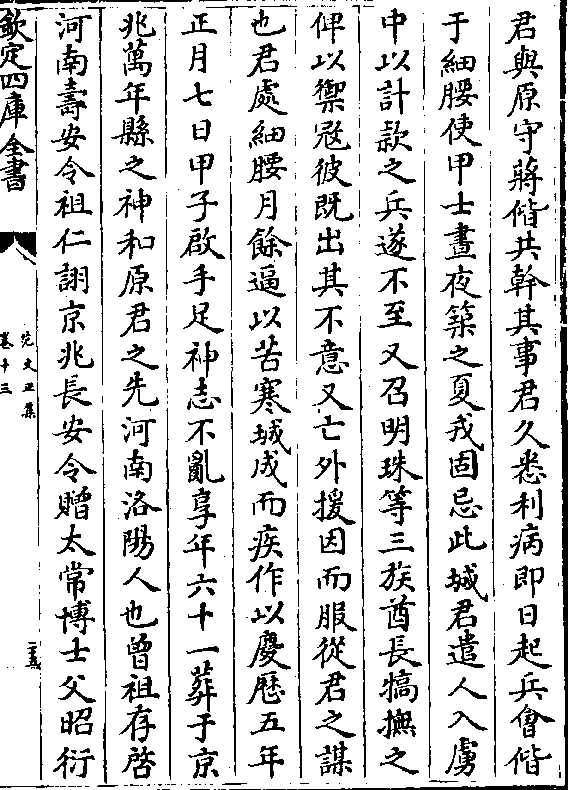 君與原守蔣偕共幹其事君久悉利病即日起兵會偕
于細腰使甲士晝夜築之夏戎固忌此城君遣人入虜
中以計款之兵遂不至又召明珠等三族酋長犒撫之
俾以禦冦彼既出其不意又亡外援因而服從君之謀
也君處細腰月餘逼以苦寒城成而疾作以慶歴五年
正月七日甲子啟手足神志不亂享年六十一葬于京
兆萬年縣之神和原君之先河南洛陽人也曾祖存啓
河南壽安令祖仁詡京兆長安令贈太常博士父昭衍
欽定四庫全書
范文正集
卷十三